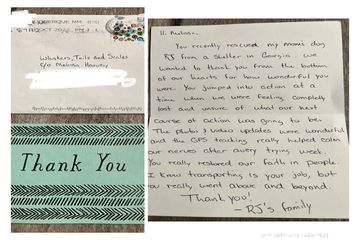 ALBUQUERQUE NM
Whiskers, Tails and Scales
c/o Melissa Harvey
Thank You
Hi Melissa,
You recently rescued my mom's dog
RJ from a shelter in Georgia. We
wanted to thank you from the bottom
of our hearts for how wonderful you
were. You jumped into action at a
time when we were feeling completely
lost and unsure of what our next
course of action was going to be.
The photo & video updates were wonderful
and the GPS tracking really helped calm
our nerves after a very trying week.
You really restored our faith in people.
I know transporting is your job, but
you really went above and beyond.
Thank you!
- RJ's family